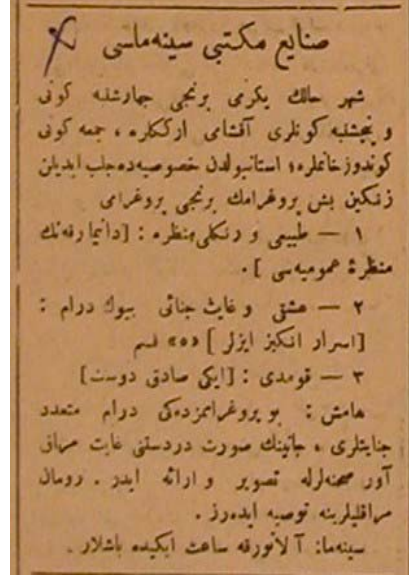 صنایع مکتبی سینه‌ماسی
شهر حالك یكرمی برنجی چهارشنبه كونی
و پنجشنبه كونلری آقشامی ارككلره ، جمعه كونی
كوندوز خانملره ؛ استانبولدن خصوصیه‌ده جلب ایدیلن
زنكین بش پروغرامك برنجی پروغرامی
۱ — طبیعی و رنكلی منظره : [دانیمارقه‌نك
منظرهٔ عمومیه‌سی ] .
۲ — عشق و غایت جنائی بیوك درام :
[اسرار انكیز ایزلر ] «۵» قسم
۳ — قومدی : [ایكی صادق دوست]
هامش : بو پروغرامزده‌كی درام متعدد
جنایتلری ، جانینك صورت دردستنی غایت هیجانی
آور صحنه‌لرله تصویر و ارائه ایدر . رومان
مراقلیلرینه توصیه ایده‌رز .
سینه‌ما: آلاتورقه ساعت ایكیده باشلار .